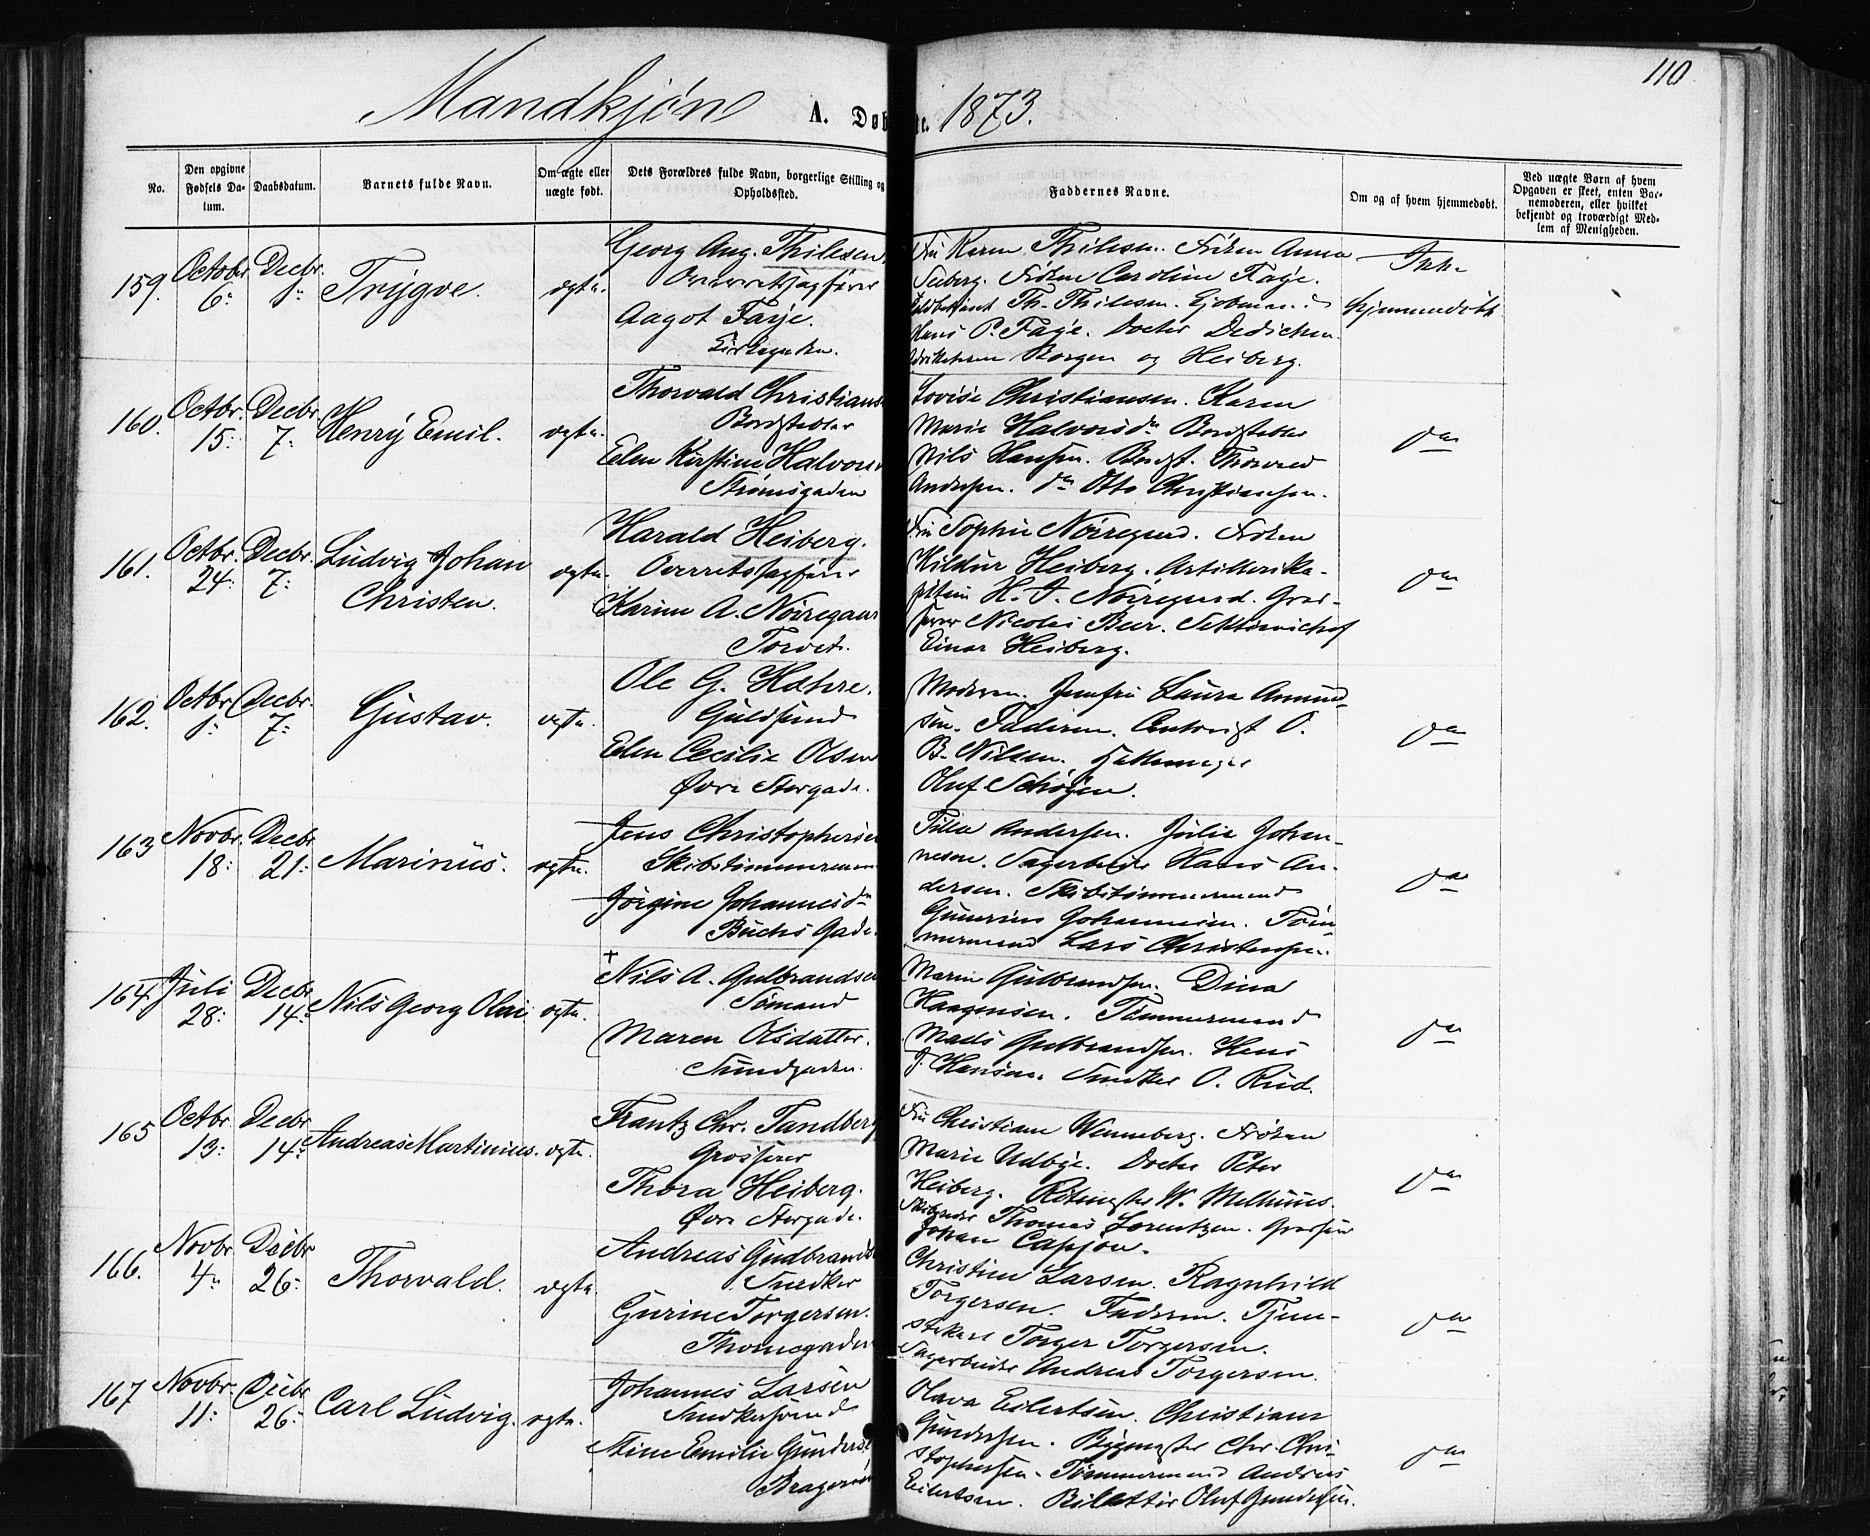 110
Mandkjøn A. Døb te. 1873.
No.
Den opgivne Fødsels Da- tum.
Daabsdatum.
Barnets fulde Navn.
Om ægte eller uægte født.
Dets Forældres fulde Navn, borgerlige Stilling og Opholdssted.
Faddernes Navne.
Om og af hvem hjemmedøbt.
Ved uægte Børn af hvem Opgaven er skeet, enten Bar- nemoderen, eller hvilket bekjendt og troværdigt Med- lem af Menigheden.
159. Octobr 6 Decbr. Trÿgve. ægte.
Georg Aug. Thilesen.
Overretssagfører
Aagot Faÿe.
Kirkegaden.
Fru Karen Thilesen. Frøken Anna
Seeberg. Frøken Caroline Faÿe.
Th. Thilesen. Kjøbmand
Hans P. Faÿe. Doctor Dedichen
Borgen og Heiberg.
Ikke
hjemmedøbt
160. Octbr. 15: Decbr. 7: Henrÿ Emil. ægte.
Thorvald Christians
Bordstabler
Elen Kirstine Halvors
Strømsgaden
Lovise Christiansen. Karen
Marie Halvorsdr Bordstabler
Nils Hansen. Bordst. Thorvald
Andersen. do Otto Christiansen.
do
161. Octbr. 24: Decbr. 7: Ludvig Johan
Christen.
ægte.
Harald Heiberg.
Overretssagfører
Karine A. Nøiregaar
Torvet.
Fru Sophie Nøiregaard. Frøken
Hildur Heiberg. Artillerika-
pitain H. J. Nøiregaard. Gros-
serer Nicolai Beer.
Einar Heiberg.
do
162. Octbr Decbr. 7: Gustav. ægte.
Ole G. Hæhre.
Guldsmed
Elen Cecilie Olsen
Øvre Storgade.
Moderen. Jomfru Laura Amund-
sen. Faderen. O.
B. Nilsen.
Oluf Schøÿen.
do
163 Novbr. 18: Decbr 21: Marinus. ægte.
Jens Christophersen
Skibstømmermand
Jørgine Johannesdr
Buchs Gade.
Andersen. Julie Johan-
nesen. Sagarbeider Hans An-
dersen. Skibstømmermand
Gunerius Johannesen. Tøm-
mermand Lars Christensen.
do
164. Juli 28: Decbr 14: Nils Georg Olai ægte.
+
Nils A. Gulbrandsen
Sømand
Maren Olsdatter.
Sundgaden.
Maren Gulbrandsen. Dina
Haagensen. Tømmermand
Mads Gulbrandsen. Hans
J. Hansen. Snedker O. Rud.
do
165 Octbr. 13: Decbr 14: Andreas Martinius. ægte.
Frantz Chr. Tandberg
Grosserer
Thora Heiberg.
Øvre Storgade.
Fru Christiane Wenneberg. Frøken
Marie Udbÿe. Doctor Peter
Heiberg. W. Melhuus.
Thomas Lorentzen. Grosserer
Johan Capjon.
do
166. Novbr. 4 Decbr 26: Thorvald. ægte
Andreas Gudbrands
Snedker
Gurine Torgersen.
Thornegaden
Christine Larsen. Ragnhild
Torgersen. Faderen. Tjene-
stekarl Torger Torgersen.
Sagarbeider Andreas Torgersen.
do
167 Novbr. 11: Decbr 26: Carl Ludvig. ægte.
Johannes Larsen
Snedkersvend
Stine Emilie Gunders
Bragernæs
Olava Eilertsen. Christiane
Gundersen. Bÿgmester Chr. Chri-
stophersen. Tømmermand Andreas
Eilertsen. Oluf Gundersen.
do